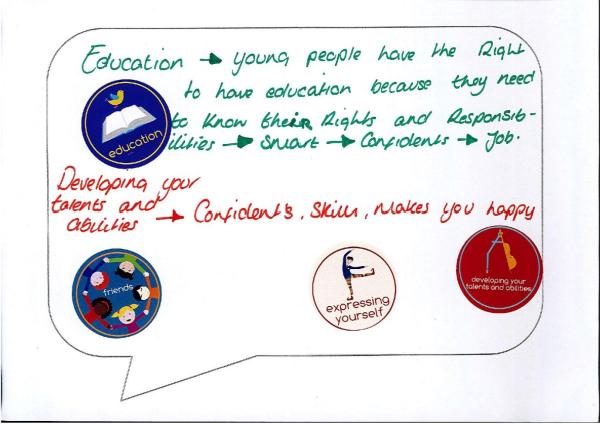 Education → Young people have the Right
to have education because they need
to Know their Rights and Responsib-
ilities → Smart → Confidents → Job.
education
Developing your
talents and
abilities → Confident's, Skills, Makes you happy
friends
expressing
yourself
developing your
talents and abilities